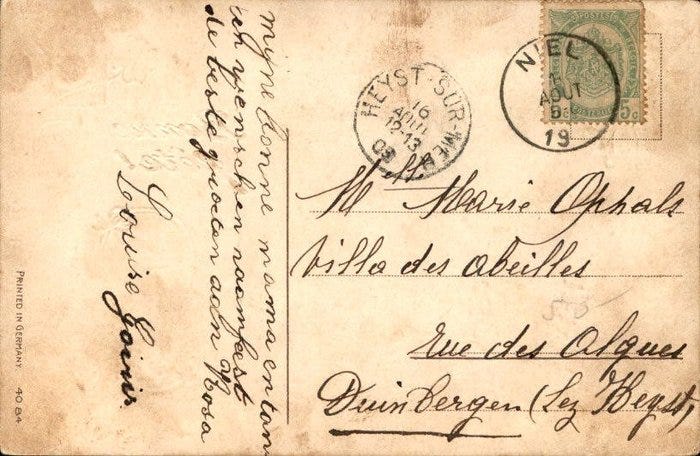 myne bonne mama en tan
ich wenschen naamfest
de beste groeten aan Rosa
Louise
PRINTED IN GERMANY.
4084
HEYST-SUR-MER
16
AOUT
12-13
09
NIEL
1
AOUT
19
5c
Mlle Marie Ophals
Villa des abeilles
rue des Algues
Duinbergen (Lez Heyst)